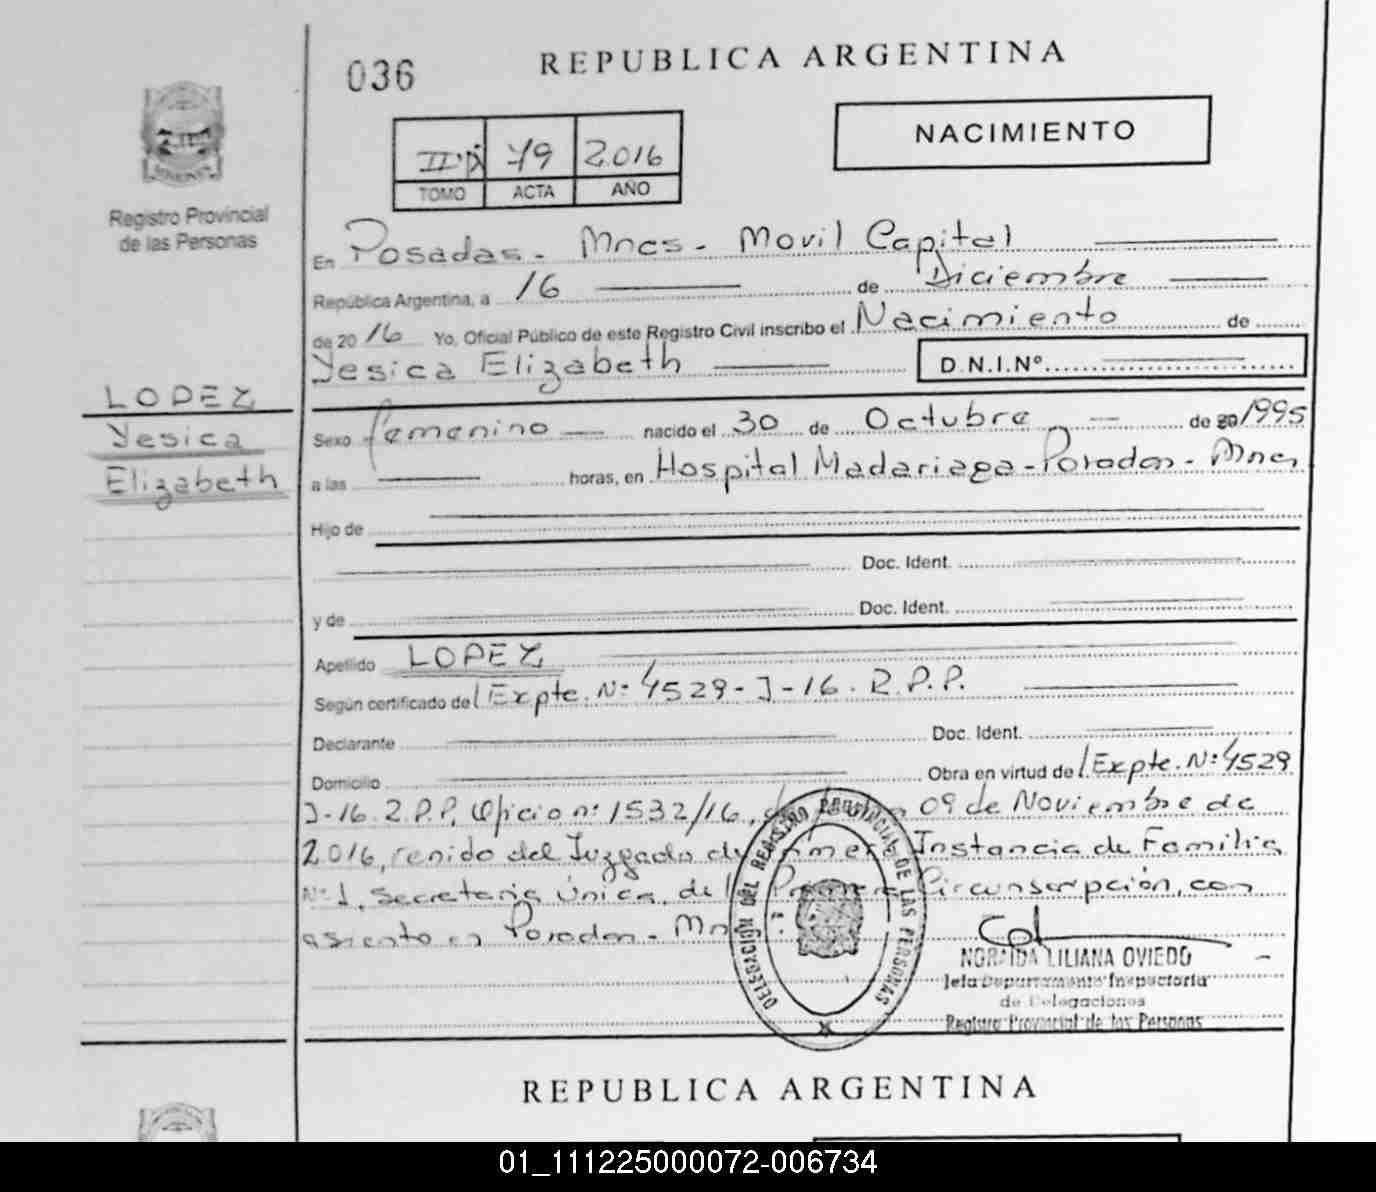 036
REPUBLICA ARGENTINA
NACIMIENTO
79 2.016
TOMO ACTA AÑO
Registro Provincial
de las Personas
En Posadas - Mnes - Movil Capital
República Argentina, a 16 de Diciembre
de 2016 Yo, Oficial Público de este Registro Civil inscribo el Nacimiento de
Yesica Elizabeth D.N.I.Nº
LOPEZ
Yesica
Elizabeth
Sexo femenino nacido el 30 de Octubre de 20/1995
a las horas, en Hospital Madariaga - Posadas - Mnes
Hijo de
Doc. Ident.
y de Doc. Ident.
Apellido LOPEZ
Según certificado del Expte. Nº 4529-J-16. R.P.P.
Declarante Doc. Ident.
Domicilio Obra en virtud de Expte. Nº 4529
J-16 R.P.P. Oficio nº 1532/16, 09 de Noviembre de
2.016, venido del Juzgado de Primera Instancia de Familia
Nº 1, Secretaria Única, de la Primera Circunscripción, con
asiento en Posadas - Mnes.
DELEGACIÓN DEL REGISTRO PROVINCIAL DE LAS PERSONAS
NORAIDA LILIANA OVIEDO
Jefa Departamento Inspectoria
de Delegaciones
Registro Provincial de las Personas
REPUBLICA ARGENTINA
01_111225000072-006734